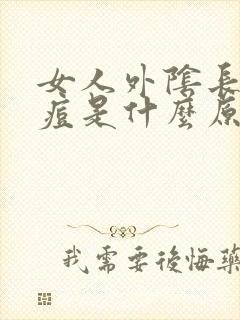 女人外陰長
痘是什麼原
我需要後悔藥